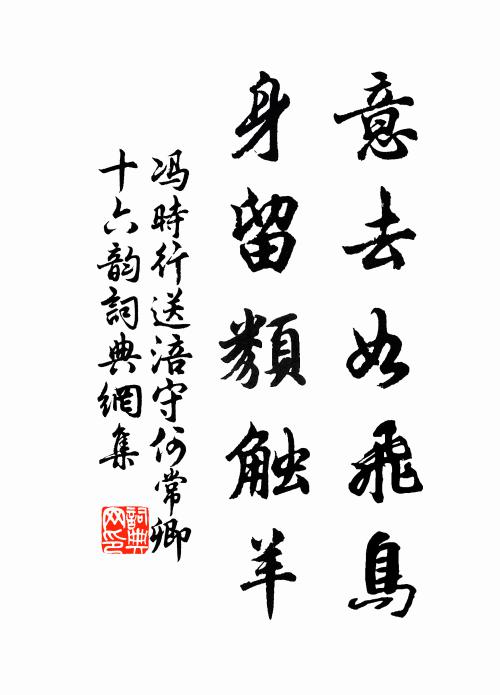 意去如飛鳥
身留類触羊
冯時行送涪守何常卿
十六韵詞典網集
詞典网印